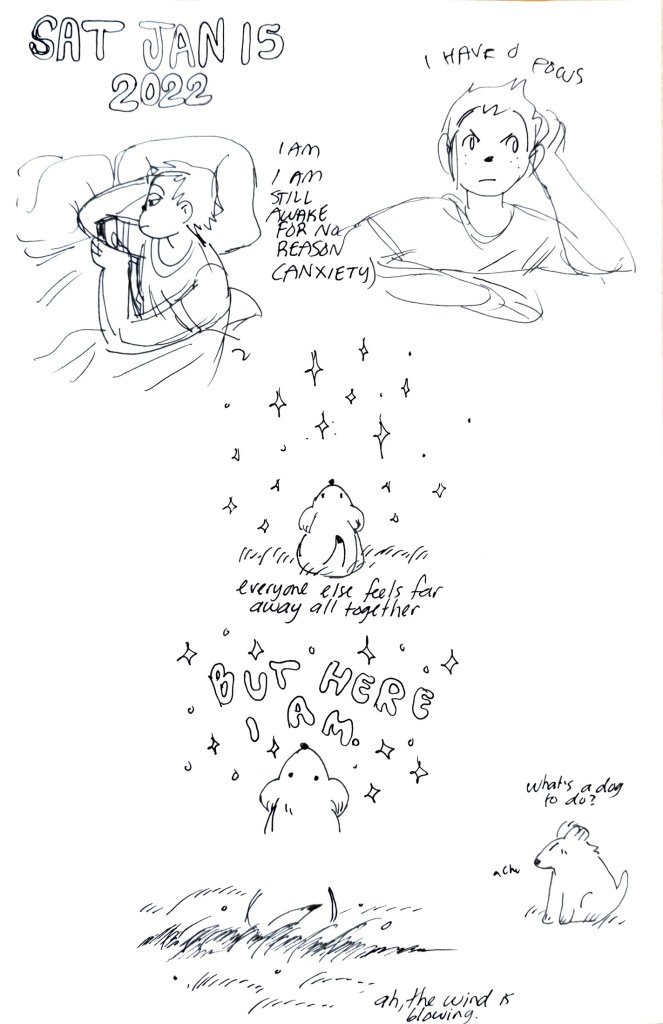 SAT JAN 15
2022
I HAVE 0 FOCUS
I AM
I AM
STILL
AWAKE
FOR NO
REASON
(ANXIETY)
everyone else feels far
away all together
BUT HERE
I AM.
what's a dog
to do?
achu
ah, the wind is
blowing.